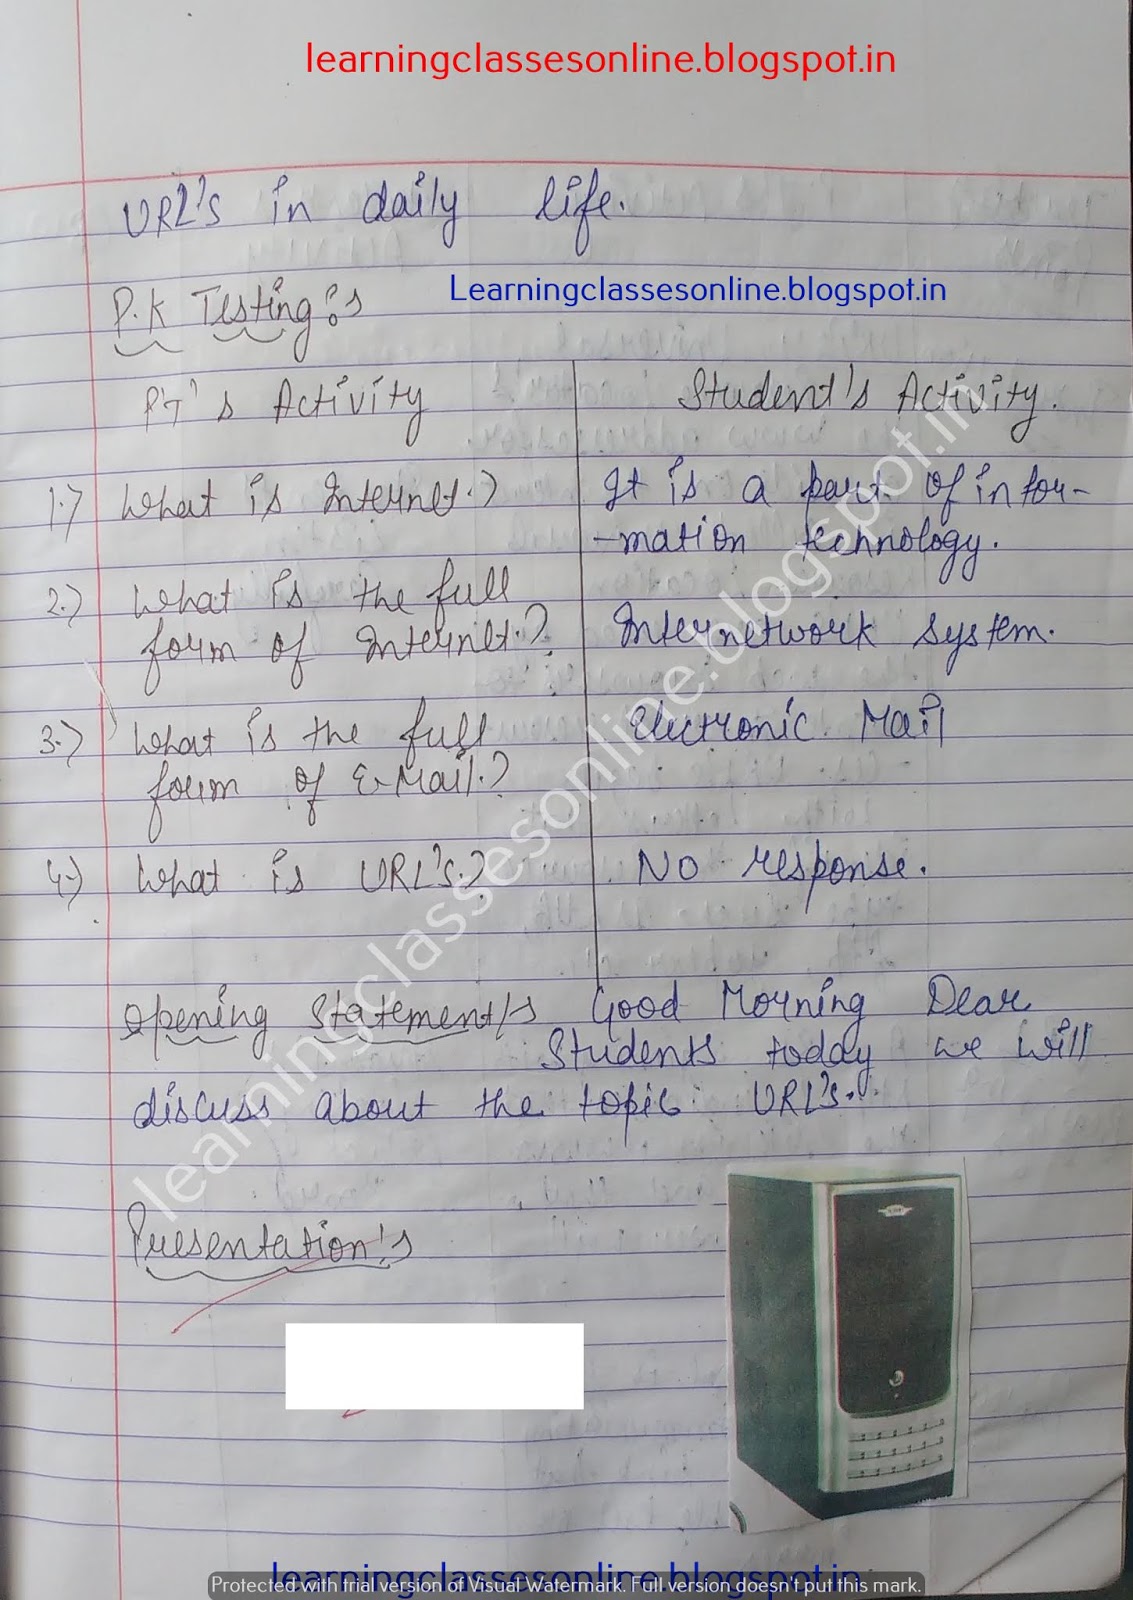 learningclassesonline.blogspot.in
URL's in daily life.
P.K Testing:s
Learningclassesonline.blogspot.in
PT's Activity
Student's Activity.
1.) What is Internet.?
It is a part of infor-
-mation technology.
2.) What is the full
form of Internet.?
Internetwork system.
3.) What is the full
form of E-Mail.?
Electronic Mail
4.) What is URL's.?
No response.
Opening Statement/s Good Morning Dear
Students today we will
discuss about the topic URL's.
Presentation's
learningclassesonline.blogspot.in
learningclassesonline.blogspot.in
Protected with trial version of Visual Watermark. Full version doesn't put this mark.